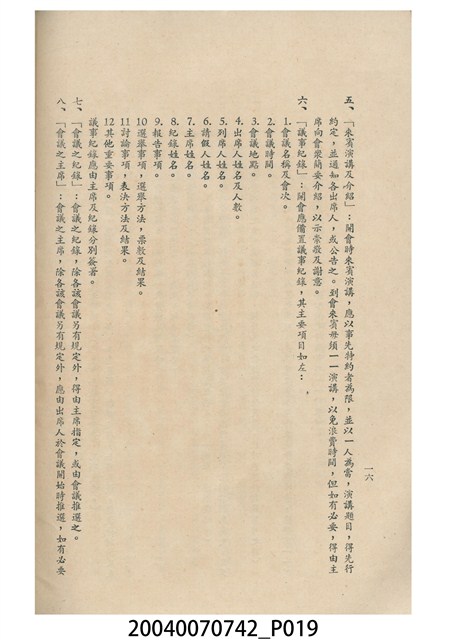 五、「來賓演講及介紹」：開會時來賓演講，應以事先特約者為限，並以一人為當，演講題目，得先行
約定，並通知各出席人，或公告之。到會來賓毋須一一演講，以免浪費時間，但如有必要，得由主
席向會眾簡要介紹，以示崇敬及謝意。
六、「議事紀錄」：開會應備置議事紀錄，其主要項目如左：
1.會議名稱及會次。
2.會議時間。
3.會議地點。
4.出席人姓名及人數。
5.列席人姓名。
6.請假人姓名。
7.主席姓名。
8.紀錄姓名。
9.報告事項。
10選舉事項，選舉方法，票數及結果。
11討論事項，表決方法及結果。
12其他重要事項。
議事紀錄應由主席及紀錄分別簽署。
七、「會議之紀錄」：會議之紀錄，除各該會議另有規定外，得由主席指定，或由會議推選之。
八、「會議之主席」：會議之主席，除各該會議另有規定外，應由出席人於會議開始時推選，如有必要
一六
20040070742_P019